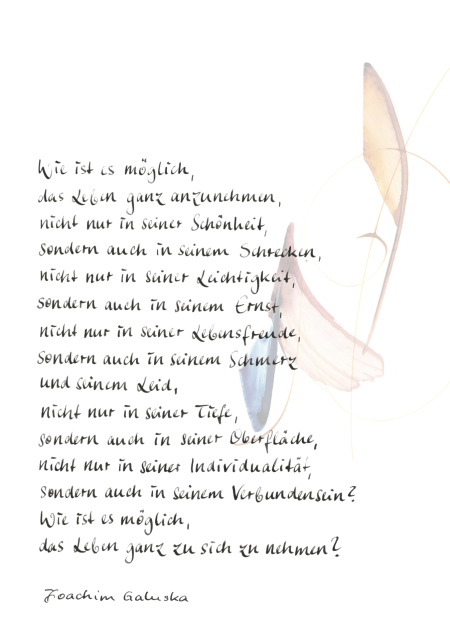 Wie ist es möglich,
das Leben ganz anzunehmen,
nicht nur in seiner Schönheit,
sondern auch in seinem Schrecken,
nicht nur in seiner Leichtigkeit,
sondern auch in seinem Ernst,
nicht nur in seiner Lebensfreude,
sondern auch in seinem Schmerz
und seinem Leid,
nicht nur in seiner Tiefe,
sondern auch in seiner Oberfläche,
nicht nur in seiner Individualität,
sondern auch in seinem Verbundensein?
Wie ist es möglich,
das Leben ganz zu sich zu nehmen?
Joachim Galuska